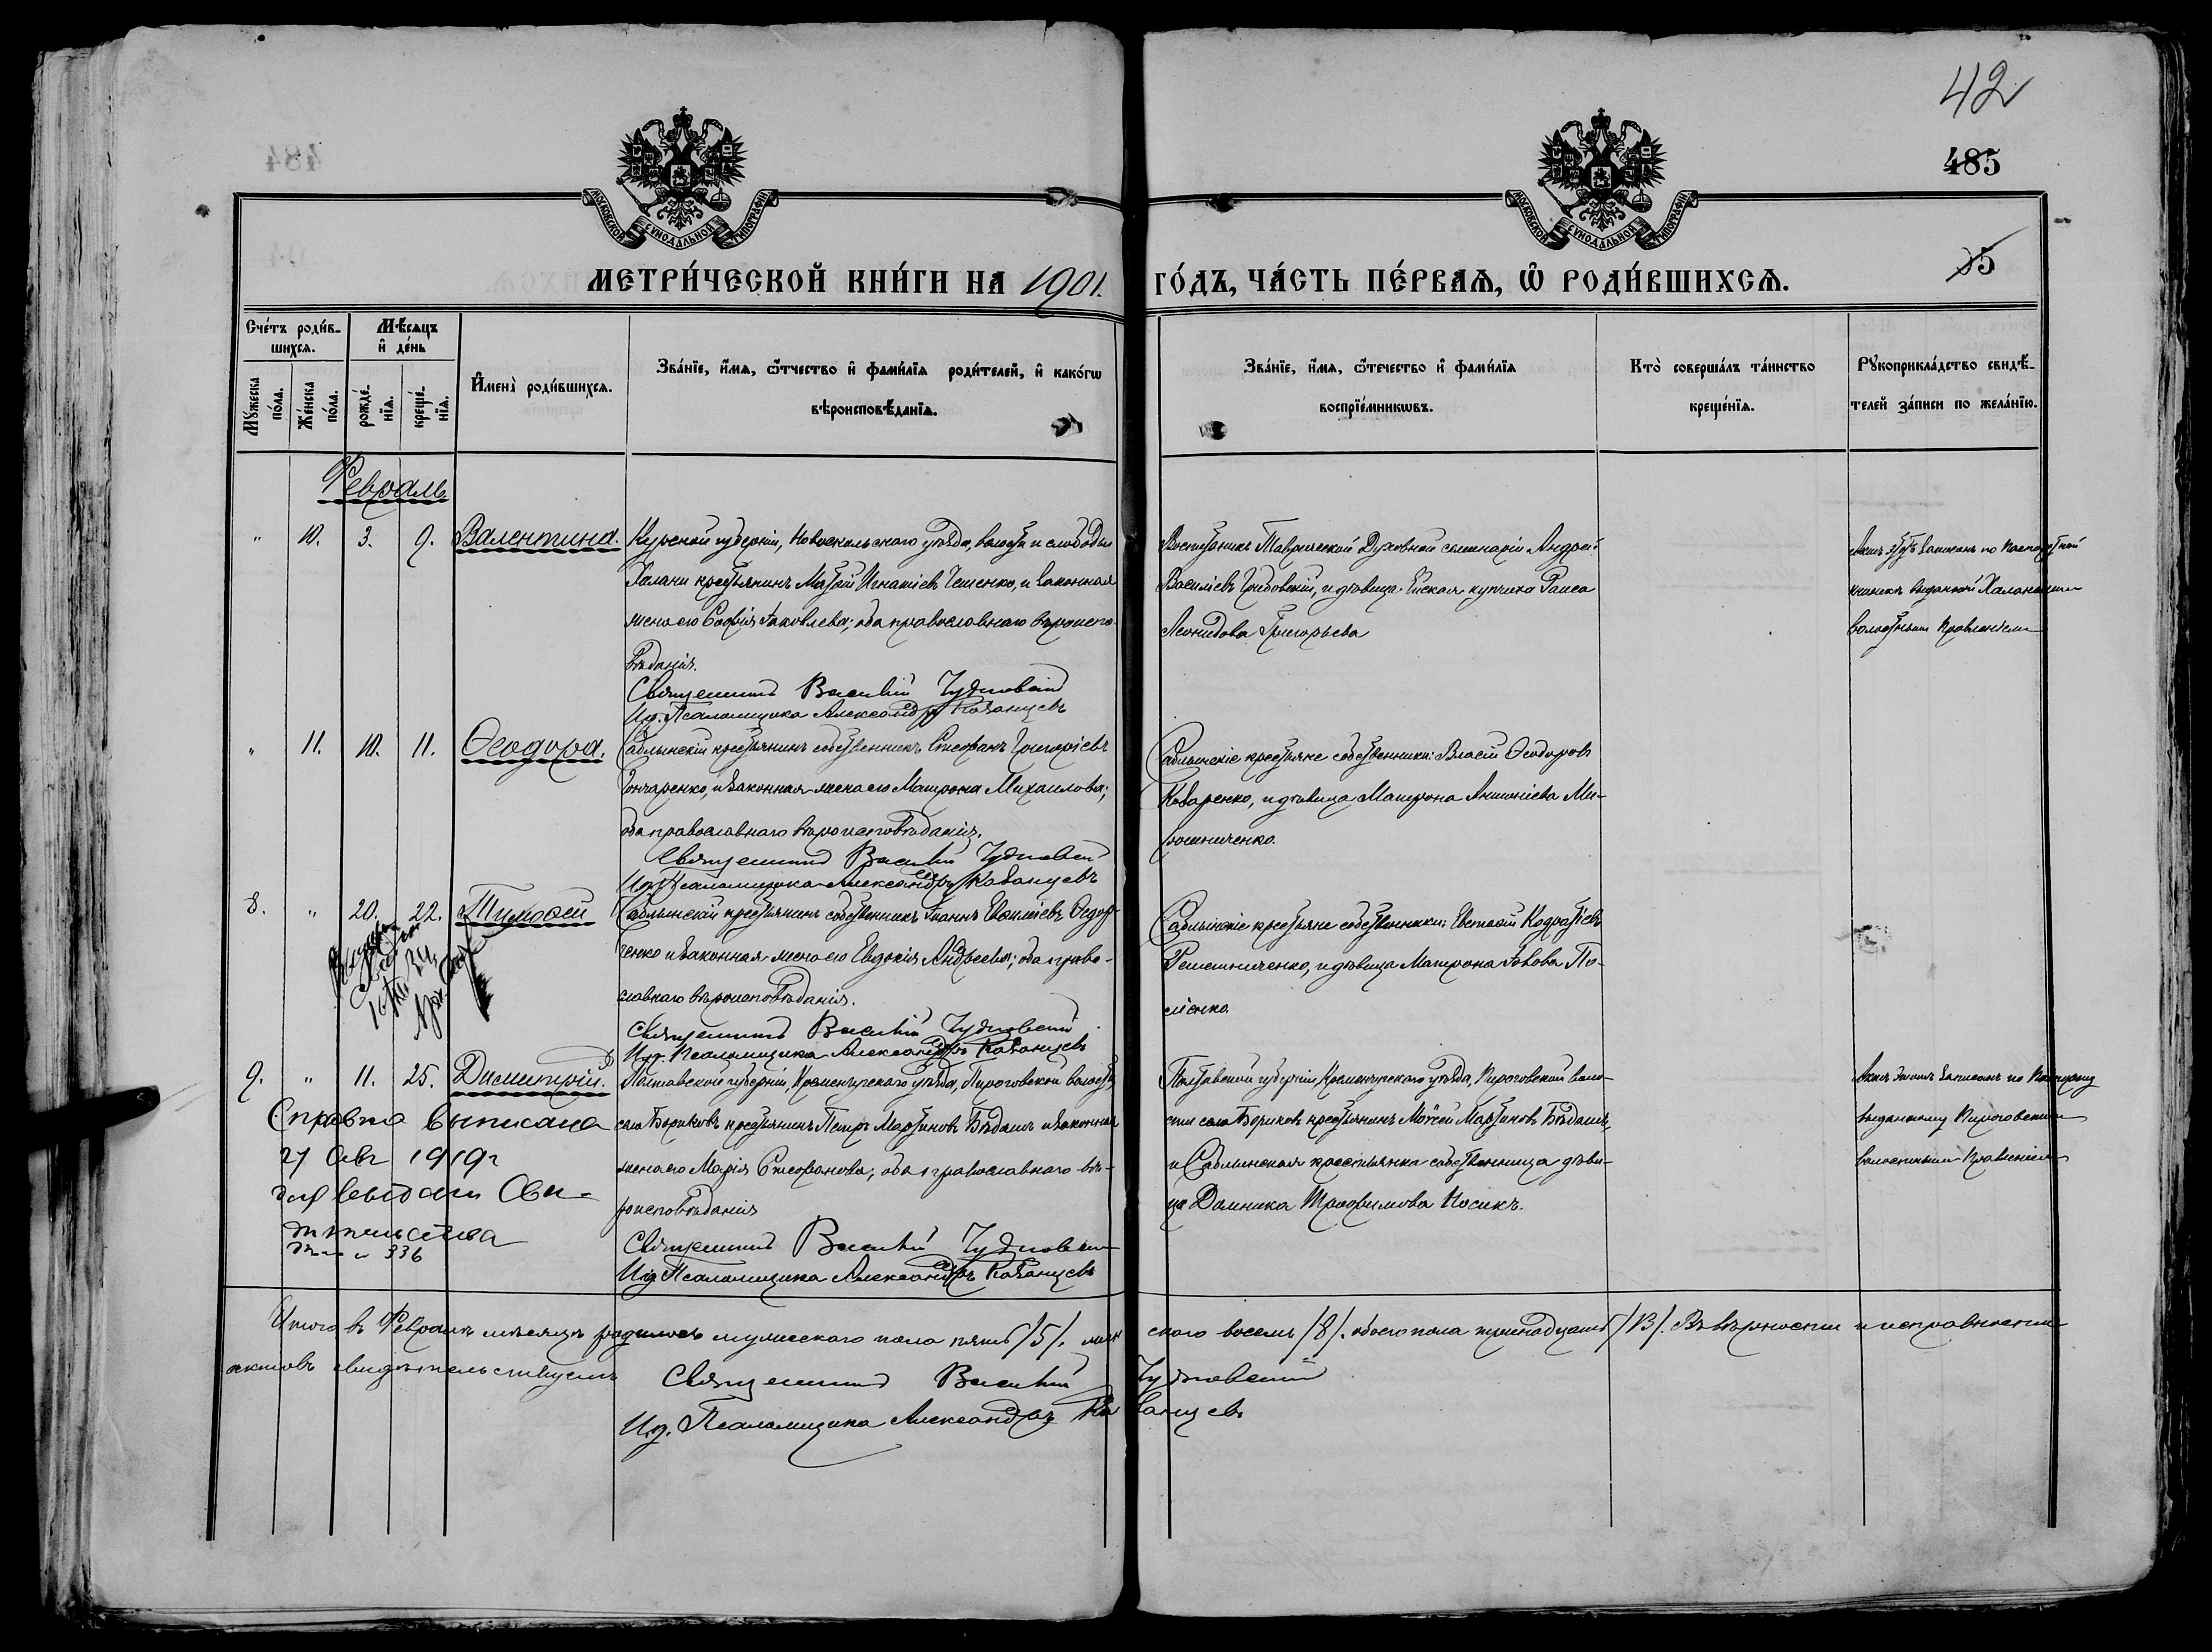 42
485
35
МОСКОВСКОЙ СѴНОДАЛЬНОЙ ТИПОГРАФІИ
МОСКОВСКОЙ СѴНОДАЛЬНОЙ ТИПОГРАФІИ
МЕТРИ́ЧЕСКОЙ КНИ́ГИ НА 1901. ГО́ДЪ, ЧА́СТЬ ПЕ́РВАѦ, Ѽ РОДИ́ВШИХСѦ.
Сче́тъ роди́в-
шихсѧ.
Мѣ́сѧцъ
и҆ де́нь
Мꙋ́жеска
по́ла.
Же́нска
по́ла.
рожде́-
нїѧ.
креще́-
нїѧ.
И҆мена̀ роди́вшихсѧ.
Зва́нїе, и҆́мѧ, ѻ҆́тчество и҆ фами́лїѧ роди́телей, и҆ како́гѡ
вѣроисповѣ́данїѧ.
Зва́нїе, и҆́мѧ, ѻ҆́течество и҆ фами́лїѧ
воспрїе́мникѡвъ.
Кто̀ соверша́лъ та́инство
креще́нїѧ.
Рꙋкоприкла́дство свидѣ́-
телей за́писи по жела́нїю.
Февраль
" 10. 3. 9. Валентина.
Курской губерніи, Новооскольскаго уѣзда, волости и слободы
Халани крестьянинъ Матѳій Игнатіевъ Чешенко, и законная
жена его Софія Іаковлева; оба православнаго вѣроиспо-
вѣданія.
Священникъ Василій Чудновскій
И.д. Псаломщика Александръ Казанцевъ
Воспитаникъ Таврической Духовной семинаріи Андрей
Василіевъ Грибовскій, и дѣвица Ейская купчиха Раиса
Леонидова Григорьева
Актъ этотъ записанъ по паспортной
книжкѣ выданной Халанскимъ
Волостнымъ Правленіемъ
" 11. 10. 11. Ѳеодора.
Саблынскій крестьянинъ собственникъ Стефанъ Григоріевъ
Гончаренко, и законная жена его Матрона Михаилова;
оба православнаго вѣроисповѣданія.
Священникъ Василій Чудновскій
И.д. Псаломщика Александръ Казанцевъ
Саблынскіе крестьяне собственники: Власій Ѳеодоровъ
Назаренко, и дѣвица Матрона Антоніева Ми-
рошниченко.
8. " 20. 22. Тимоѳей
Саблынскій крестьянинъ собственникъ Іоаннъ Евсиліевъ Ѳедор-
ченко и законная жена его Евдокія Андреева; оба право-
славнаго вѣроисповѣданія.
Священникъ Василій Чудновскій
И.д. Псаломщика Александръ Казанцевъ
Саблынскіе крестьяне собственники: Евстаѳій Кодратіевъ
Решетниченко, и дѣвица Матрона Іовова По-
9. " 11. 25. Димитрій.
Полтавской губерніи, Кременчугскаго уѣзда, Пироговской волости,
села Бориковъ крестьянинъ Петръ Мартиновъ Бѣдашъ и законная
жена его Марія Стефанова; оба православнаго вѣ-
роисповѣданія
Священникъ Василій Чудновскій
И.д. Псаломщика Александръ Казанцевъ
Полтавской губерніи, Кременчугскаго уѣзда, Пироговской воло-
сти села Бориковъ крестьянинъ Моѵсей Мартиновъ Бѣдашъ,
и Саблынская крестьянка собственница дѣви-
ца Домника Трофимова Носикъ.
Актъ этотъ записанъ по паспорту
выданному Пироговскимъ
Волостнымъ Правленіемъ
Справка выписана
27 Авг 1919г
для выдачи Сви-
336
Итого въ Февралѣ мѣсяцѣ родилось мужескаго пола пять /5/. женскаго восемь /8/. обоего пола тринадцать /13/. Въ вѣрности и исправности
актовъ свидѣтельствуемъ
Священникъ Василій Чудновскій
И.д. Псаломщика Александръ Казанцевъ